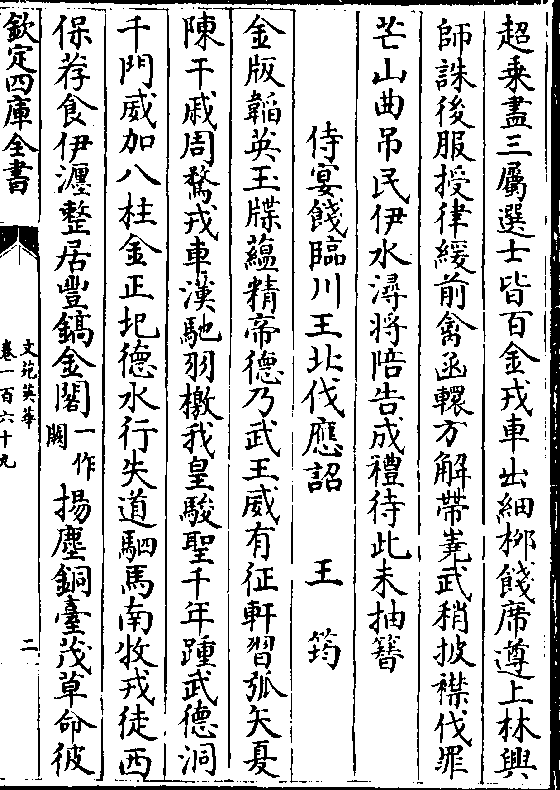 超乗盡三屬選士皆百金戎車出細栁餞席遵上林興
師誅後服授律緩前禽函轘方解帶嶤武稍披襟伐罪
芒山曲吊民伊水潯将陪告成禮待此未抽簮
侍宴餞臨川王北伐應詔 王筠
金版韜英玉牒藴精帝德乃武王威有征軒習弧矢夏
陳干戚周騖戎車漢馳羽檄我皇駿聖千年踵武德洞
千門威加八柱金正圯德水行失道駟馬南牧戎徒西
保荐食伊瀍整居豐鎬金闍一作闕揚塵銅臺茂草命彼
欽定四庫全書
文苑英華
卷一百六十九
二